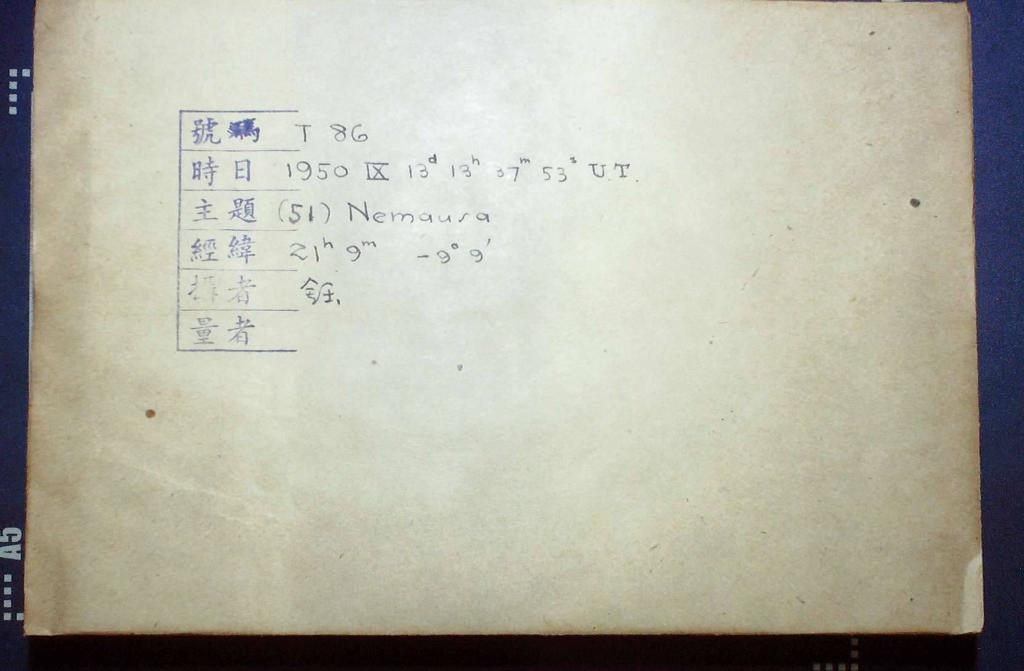 號碼 T 86
時日 1950 IX 13ᵈ 13ʰ 37ᵐ 53ˢ UT.
主題 (51) Nemausa
經緯 21ʰ 9ᵐ -9° 9'
攝者
量者
A5